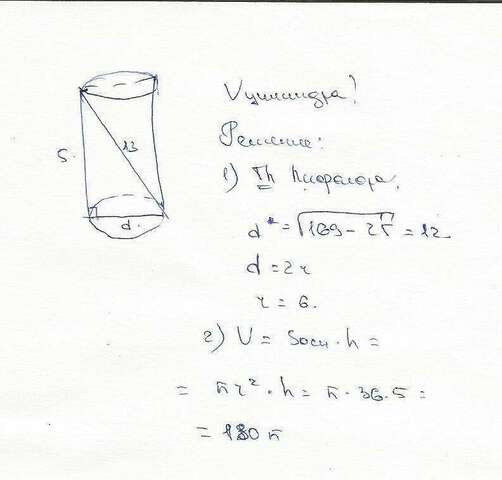 Vцилиндра!
Решение:
5.
13
d.
1) Th Пифагора.
d = √169 - 25 = 12
d = 2r
r = 6.
2) V = Sосн · h =
= πr² · h = π · 36 · 5 =
= 180 π